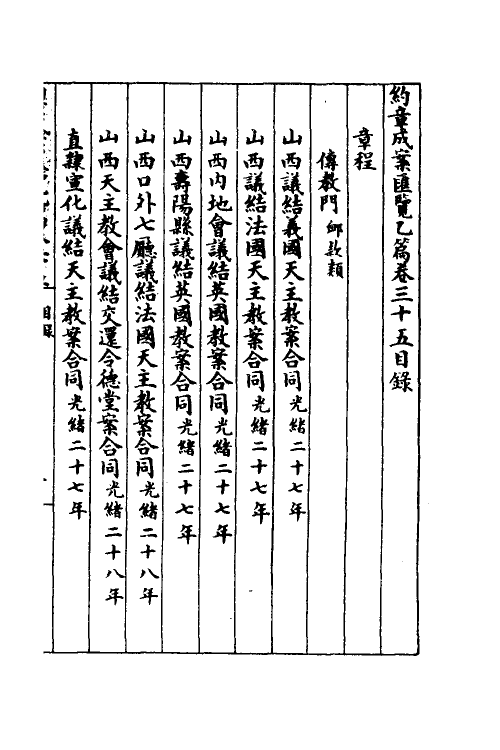 約章成案匯覽乙篇卷三十五目錄
章程
傳教門 卹款類
山西議結義國天主教案合同 光緒二十七年
山西議結法國天主教案合同 光緒二十七年
山西內地會議結英國教案合同 光緒二十七年
山西壽陽縣議結英國教案合同 光緒二十七年
山西口外七廳議結法國天主教案合同 光緒二十八年
山西天主教會議結交還令德堂案合同 光緒二十八年
直隸宣化議結天主教案合同 光緒二十七年
目錄